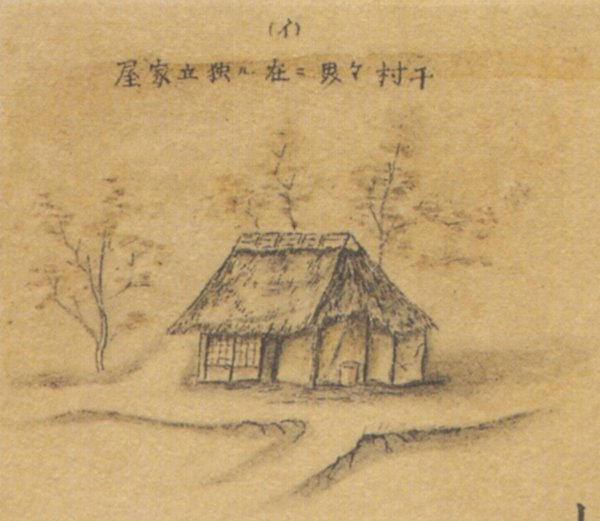 (イ)
千村ニ在ル独立家屋